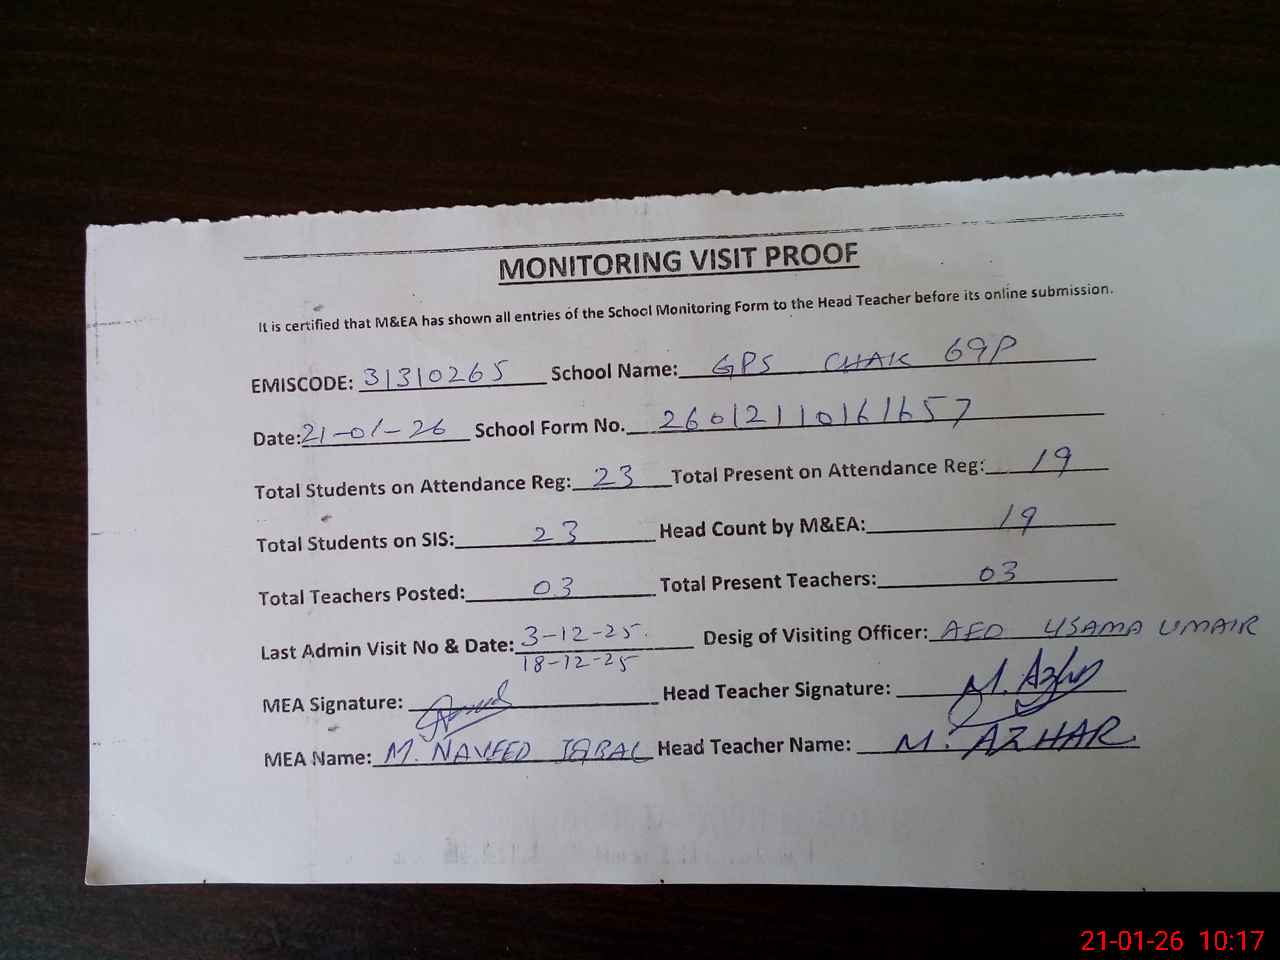 MONITORING VISIT PROOF
It is certified that M&EA has shown all entries of the School Monitoring Form to the Head Teacher before its online submission.
EMISCODE: 31310265 School Name: GPS CHAK 69P
Date: 21-01-26 School Form No. 26012110161657
Total Students on Attendance Reg: 23 Total Present on Attendance Reg: 19
Total Students on SIS: 23 Head Count by M&EA: 19
Total Teachers Posted: 03 Total Present Teachers: 03
Last Admin Visit No & Date: 3-12-25. Desig of Visiting Officer: AEO USAMA UMAIR
18-12-25
MEA Signature: Head Teacher Signature: M. Azhar
MEA Name: M. NAVEED IQBAL Head Teacher Name: M. AZHAR.
21-01-26 10:17